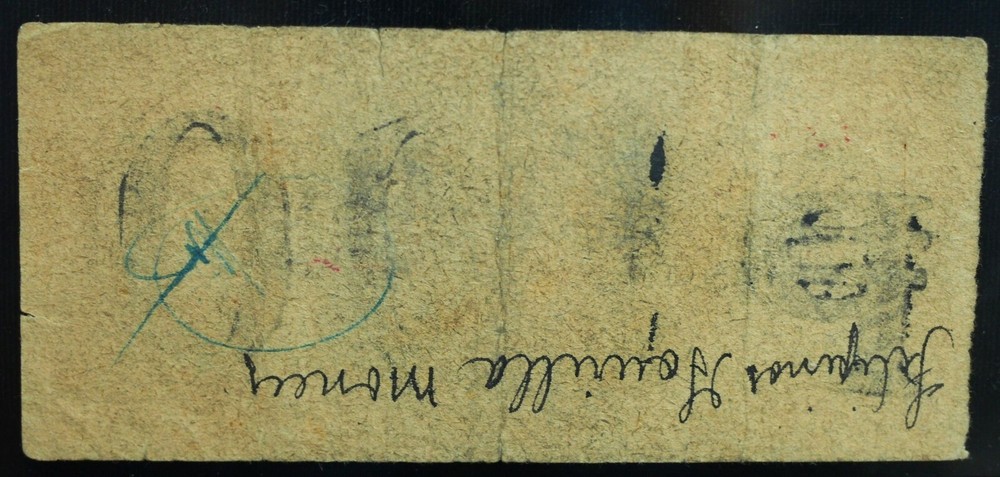 Filipinos Gourilla money